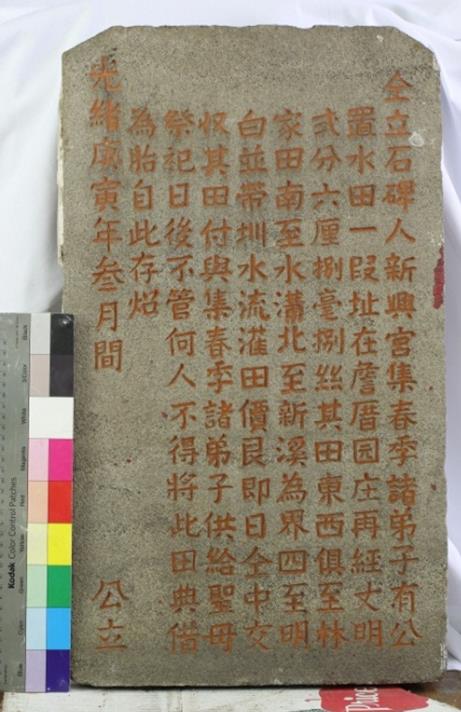 仝立石碑人新興宮集春季諸弟子有公
置水田一段址在詹厝园庄再經丈明
弍分六厘捌毫捌絲其田東西俱至林
家田南至水溝北至新溪為界四至明
白並帶圳水流灌田價艮即日仝中交
收其田付與集春季諸弟子供給聖母
祭祀日後不管何人不得將此田典借
為胎自此存炤
光緒庚寅年叁月間 公立
Kodak Color Control Patches
Black
3/Color
White
Magenta
Red
Yellow
Green
Cyan
Blue
Price